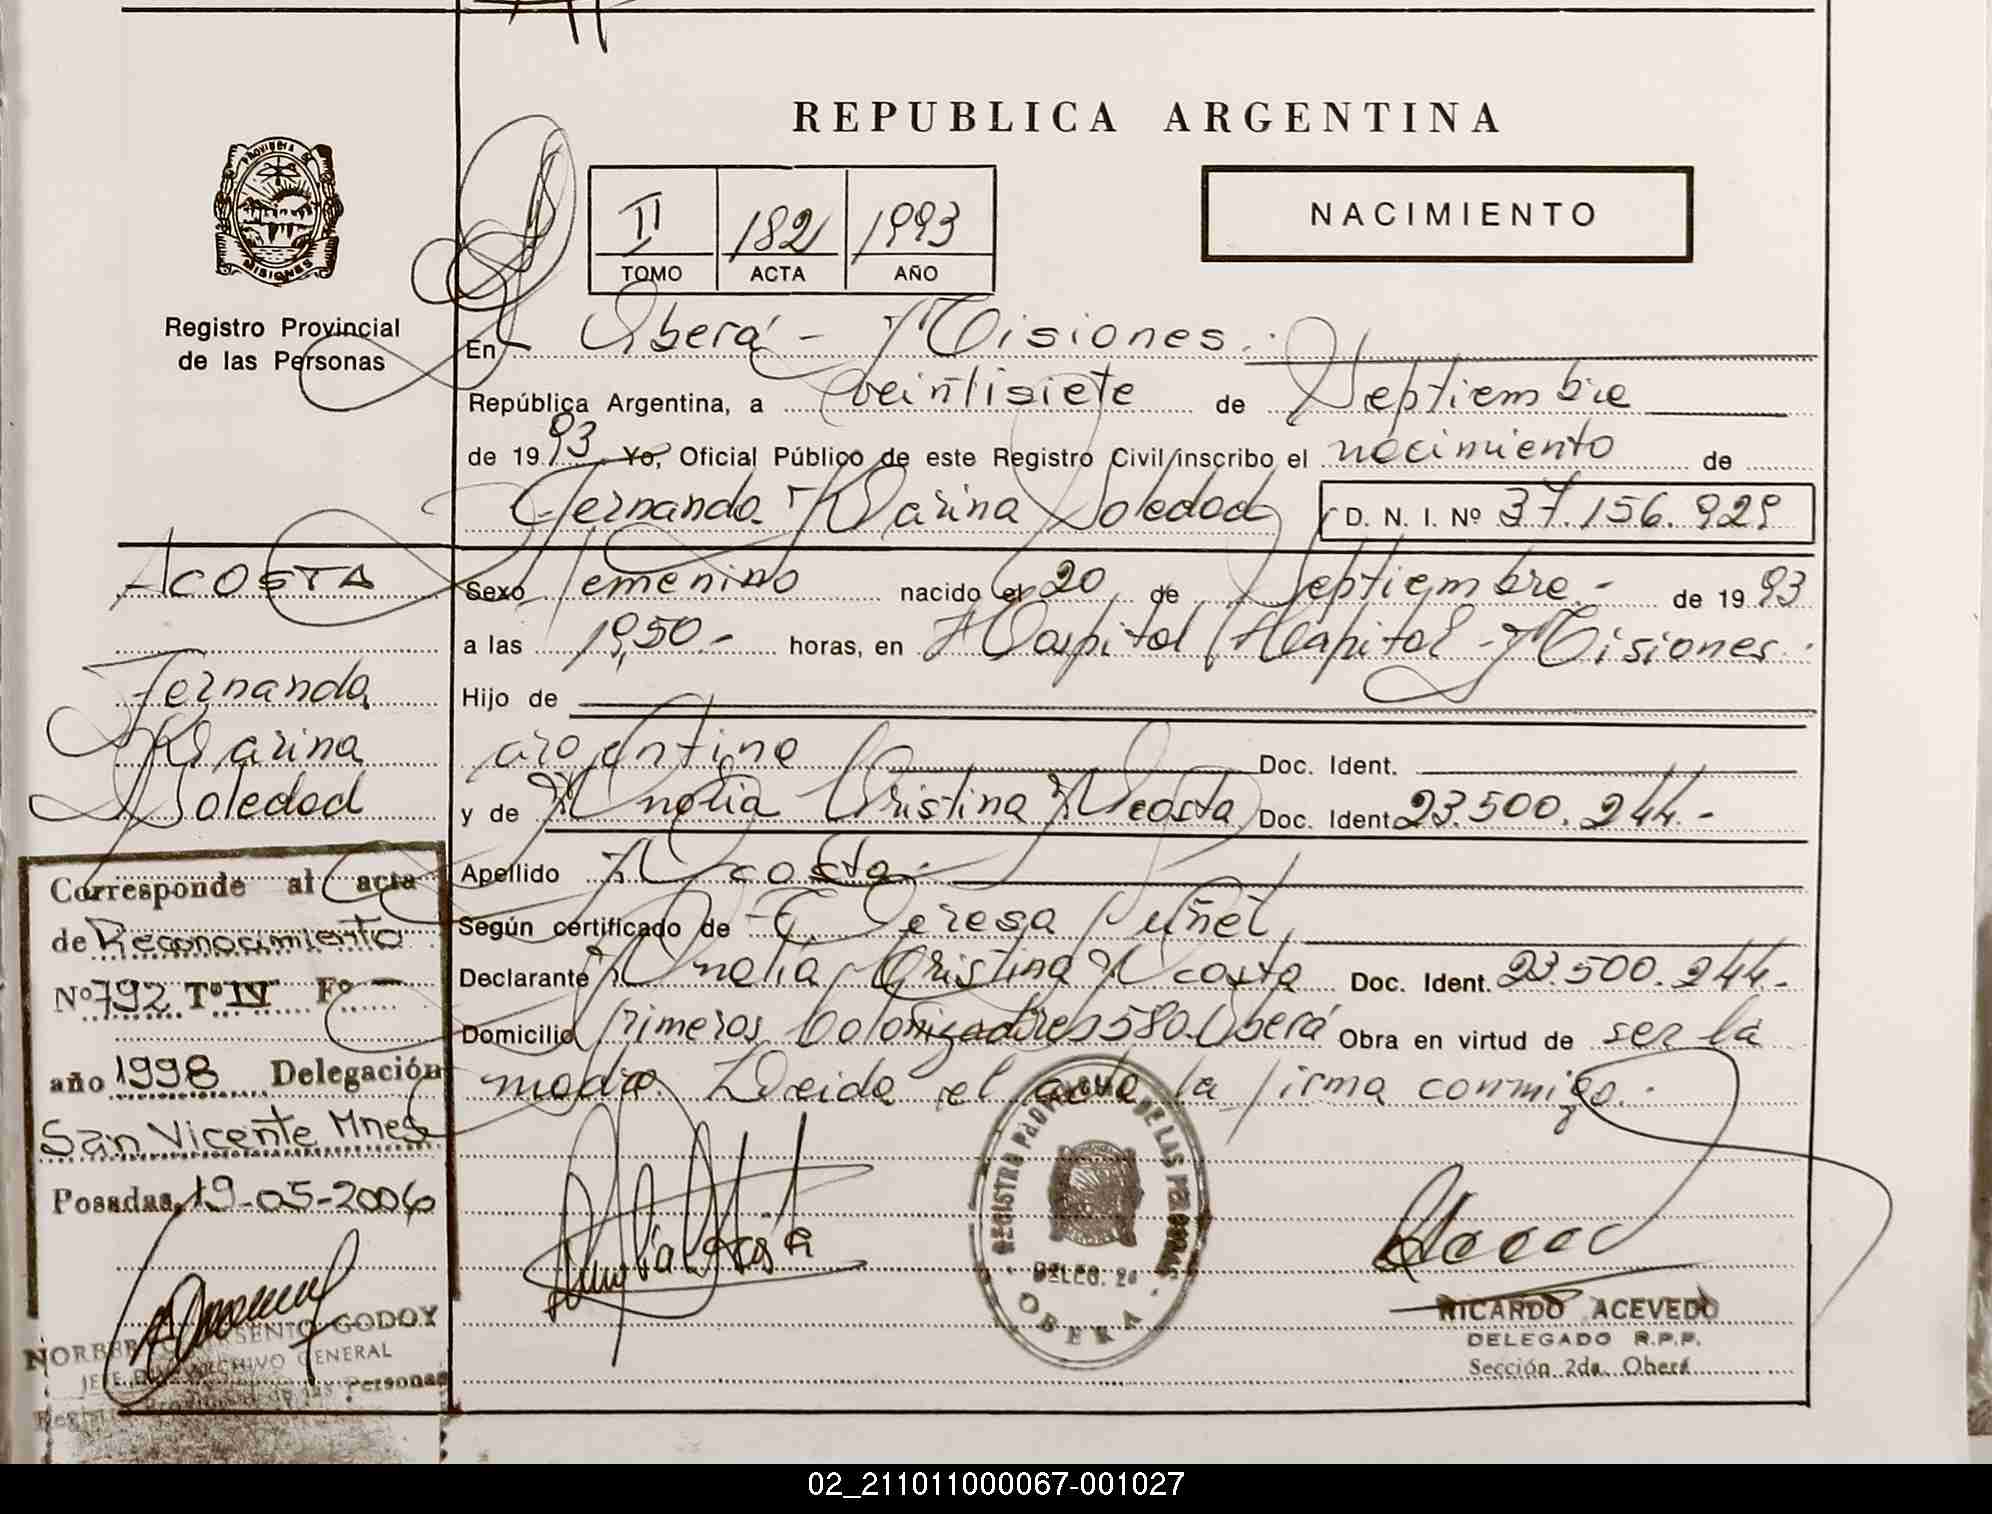 REPUBLICA ARGENTINA
PROVINCIA DE
MISIONES
Registro Provincial
de las Personas
II 182 1993
TOMO ACTA AÑO
NACIMIENTO
En Oberá - Misiones.
República Argentina, a veintisiete de Septiembre
de 1993 Yo, Oficial Público de este Registro Civil inscribo el nacimiento de
Fernanda Karina Soledad D. N. I. Nº 37.156.929
ACOSTA
Fernanda
Karina
Soledad
Sexo Femenino nacido el 20 de Septiembre - de 1993
a las 19,50.- horas, en Hospital - Misiones.
Hijo de
argentina Doc. Ident.
y de Analia Cristina Acosta Doc. Ident. 23.500.244.-
Apellido Acosta.-
Según certificado de Teresa
Declarante Analia Cristina Acosta Doc. Ident. 23.500.244.-
Domicilio Primeros Colonizadores 580. Oberá Obra en virtud de ser la
madre. Leida el acta la firma conmigo.
Corresponde al acta
de Reconocimiento
Nº 792 Tº IV Fº -
año 1998 Delegación
San Vicente Mnes
Posadas, 19-05-2006
GODOY
ARCHIVO GENERAL
de las Personas
REGISTRO PROVINCIAL DE LAS PERSONAS
DELEG. 2a
OBERA
RICARDO ACEVEDO
DELEGADO R.P.P.
Sección 2da. Oberá
02_211011000067-001027